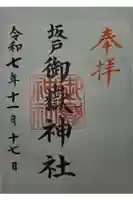 奉拝
坂戸
御嶽神社
令和七年十一月十七日